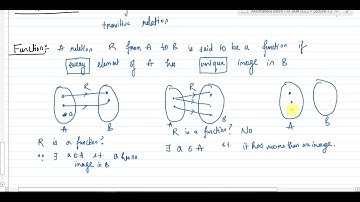 transitive relation
Function:- A relation R from A to B is said to be a function if
every element of A has unique image in B
a
A
B
A
B
A
B
R is a function?
R is a function? No
∵ ∃ a∈A s.t. a has no
image in B
∃ a∈A s.t. it has more than one image.